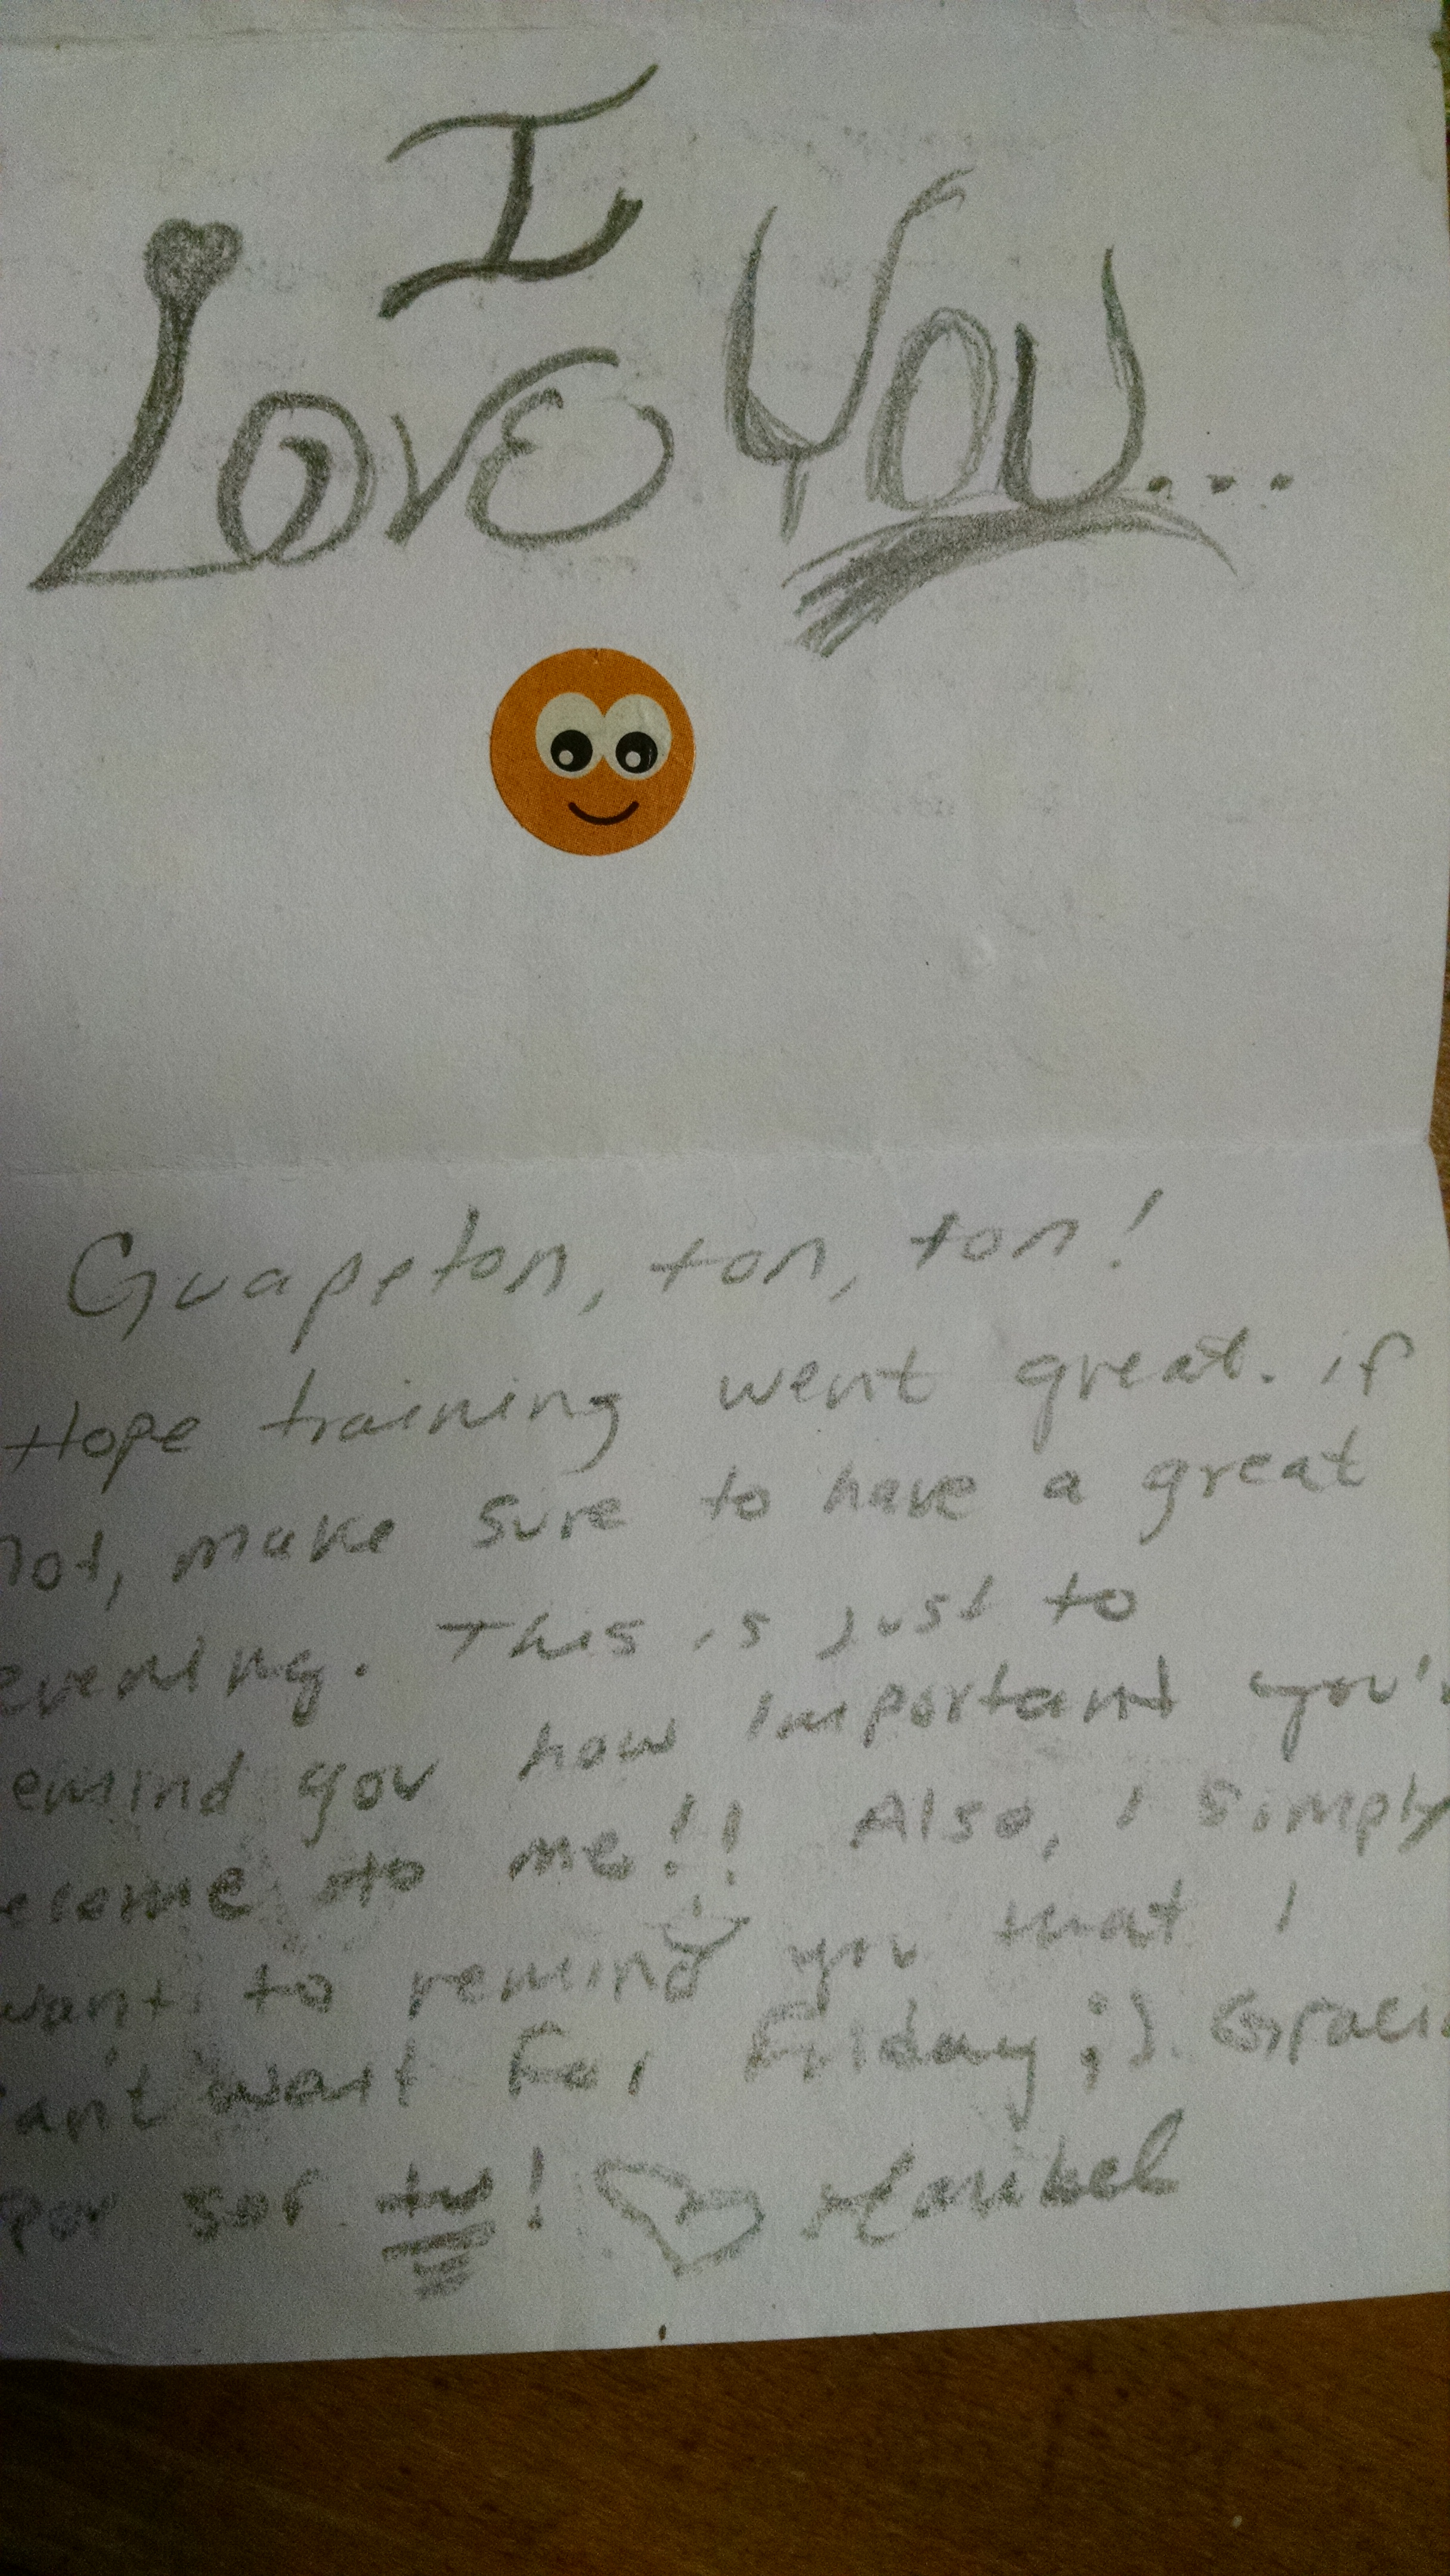 I
Love You...
Guapeton, ton, ton!
Hope training went great. if
not, make sure to have a great
evening. This is just to
emind you how important you'
ecome to me!! Also, I simply
want to remind you that I
an't wait for Friday ;). Graci
por ser tu! Maribel